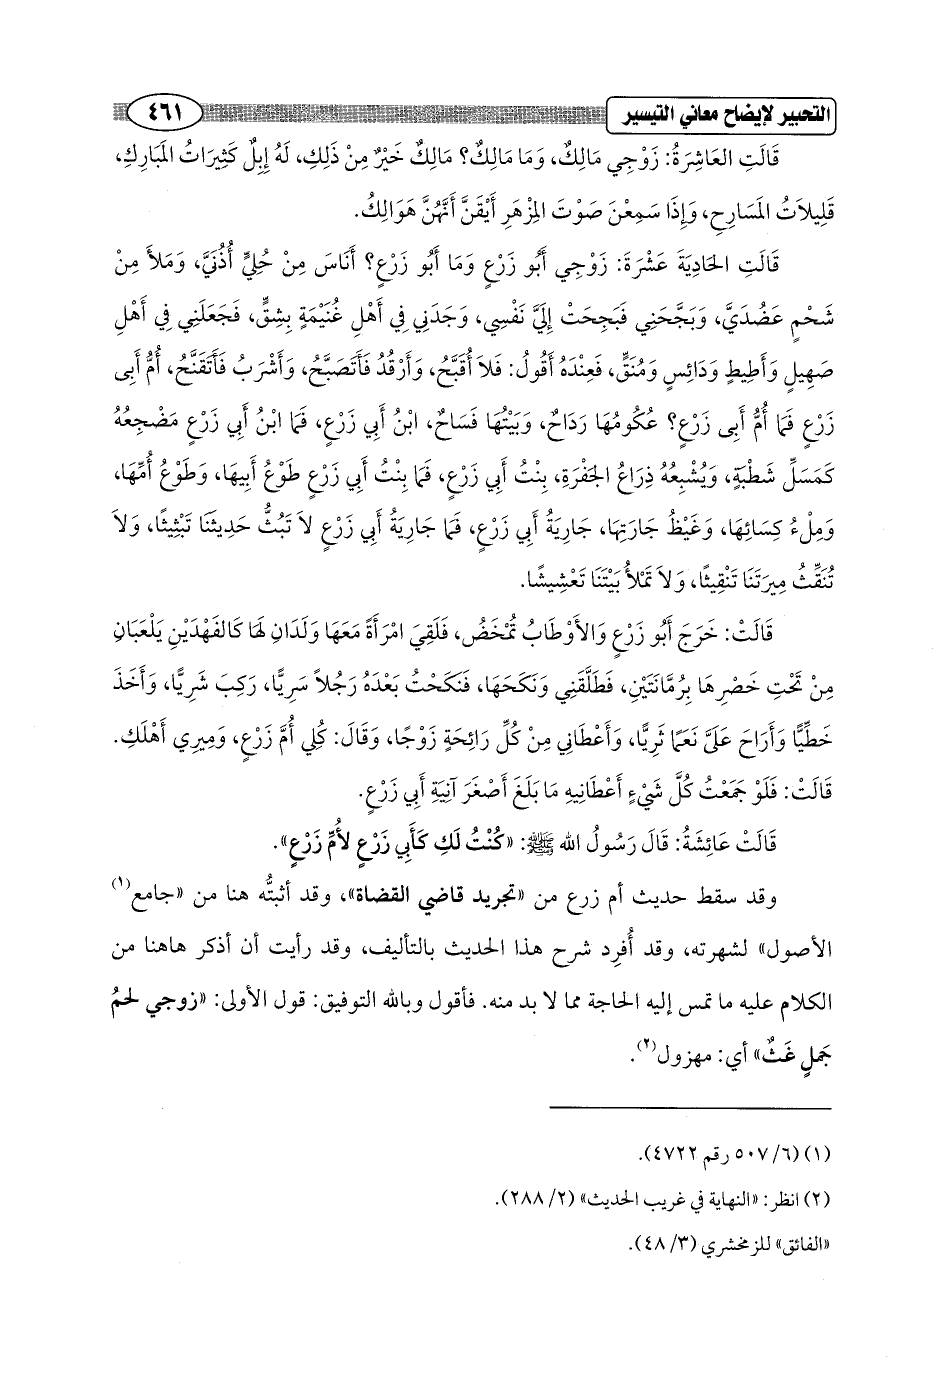 التحبير لإيضاح معاني التيسير
٤٦١
قَالَتِ العَاشِرَةُ: زَوْجِي مَالِكٌ، وَمَا مَالِكٌ؟ مَالِكٌ خَيْرٌ مِنْ ذَلِكِ، لَهُ إِبِلٌ كَثِيرَاتُ المَبَارِكِ،
قَلِيلاَتُ المَسَارِحِ، وَإِذَا سَمِعْنَ صَوْتَ المِزْهَرِ أَيْقَنَّ أَنَّهُنَّ هَوَالِكُ.
قَالَتِ الحَادِيَةَ عَشْرَةَ: زَوْجِي أَبُو زَرْعٍ وَمَا أَبُو زَرْعٍ؟ أَنَاسَ مِنْ حُلِيٍّ أُذُنَيَّ، وَمَلأَ مِنْ
شَحْمٍ عَضُدَيَّ، وَبَجَّحَنِي فَبَجِحَتْ إِلَيَّ نَفْسِي، وَجَدَنِي فِي أَهْلِ غُنَيْمَةٍ بِشِقٍّ، فَجَعَلَنِي فِي أَهْلِ
صَهِيلٍ وَأَطِيطٍ وَدَائِسٍ وَمُنَقٍّ، فَعِنْدَهُ أَقُولُ: فَلاَ أُقَبَّحُ، وَأَرْقُدُ فَأَتَصَبَّحُ، وَأَشْرَبُ فَأَتَقَنَّحُ، أُمُّ أَبِى
زَرْعٍ فَمَا أُمُّ أَبِى زَرْعٍ؟ عُكُومُهَا رَدَاحٌ، وَبَيْتُهَا فَسَاحٌ، ابْنُ أَبِي زَرْعٍ، فَمَا ابْنُ أَبِي زَرْعٍ مَضْجِعُهُ
كَمَسَلِّ شَطْبَةٍ، وَيُشْبِعُهُ ذِرَاعُ الجَفْرَةِ، بِنْتُ أَبِي زَرْعٍ، فَمَا بِنْتُ أَبِي زَرْعٍ طَوْعُ أَبِيهَا، وَطَوْعُ أُمِّهَا،
وَمِلْءُ كِسَائِهَا، وَغَيْظُ جَارَتِهَا، جَارِيَةُ أَبِي زَرْعٍ، فَمَا جَارِيَةُ أَبِي زَرْعٍ لاَ تَبُثُّ حَدِيثَنَا تَبْثِيثًا، وَلاَ
تُنَقِّثُ مِيرَتَنَا تَنْقِيثًا، وَلاَ تَمْلأُ بَيْتَنَا تَعْشِيشًا.
قَالَتْ: خَرَجَ أَبُو زَرْعٍ وَالأَوْطَابُ تُمْخَضُ، فَلَقِيَ امْرَأَةً مَعَهَا وَلَدَانِ لَهَا كَالفَهْدَيْنِ يَلْعَبَانِ
مِنْ تَحْتِ خَصْرِهَا بِرُمَّانَتَيْنِ، فَطَلَّقَنِي وَنَكَحَهَا، فَنَكَحْتُ بَعْدَهُ رَجُلاً سَرِيًّا، رَكِبَ شَرِيًّا، وَأَخَذَ
خَطِّيًّا وَأَرَاحَ عَلَىَّ نَعَمًا ثَرِيًّا، وَأَعْطَانِي مِنْ كُلِّ رَائِحَةٍ زَوْجًا، وَقَالَ: كُلِي أُمَّ زَرْعٍ، وَمِيرِي أَهْلَكِ.
قَالَتْ: فَلَوْ جَمَعْتُ كُلَّ شَيْءٍ أَعْطَانِيهِ مَا بَلَغَ أَصْغَرَ آنِيَةِ أَبِي زَرْعٍ.
قَالَتْ عَائِشَةُ: قَالَ رَسُولُ الله ﷺ: «كُنْتُ لَكِ كَأَبِي زَرْعٍ لأُمِّ زَرْعٍ».
وقد سقط حديث أم زرع من «تجريد قاضي القضاة»، وقد أثبتُّه هنا من «جامع(١)
الأصول» لشهرته، وقد أُفرِد شرح هذا الحديث بالتأليف، وقد رأيت أن أذكر هاهنا من
الكلام عليه ما تمس إليه الحاجة مما لا بد منه. فأقول وبالله التوفيق: قول الأولى: «زوجي لحمُ
جَملٍ غَثٌ» أي: مهزول(٢).
(١) (٦/ ٥٠٧ رقم ٤٧٢٢).
(٢) انظر: «النهاية في غريب الحديث» (٢/ ٢٨٨).
«الفائق» للزمخشري (٣/ ٤٨).